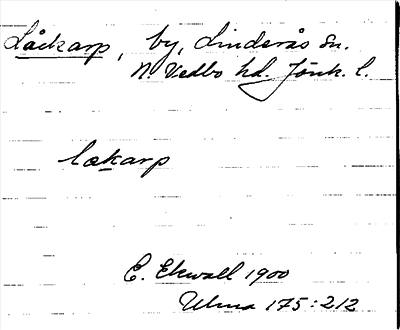 Låckarp, by, Linderås sn.
N Vedbo hd. Jönk. l.
lakarp
E. Ekwall 1900
Ulma 175:212